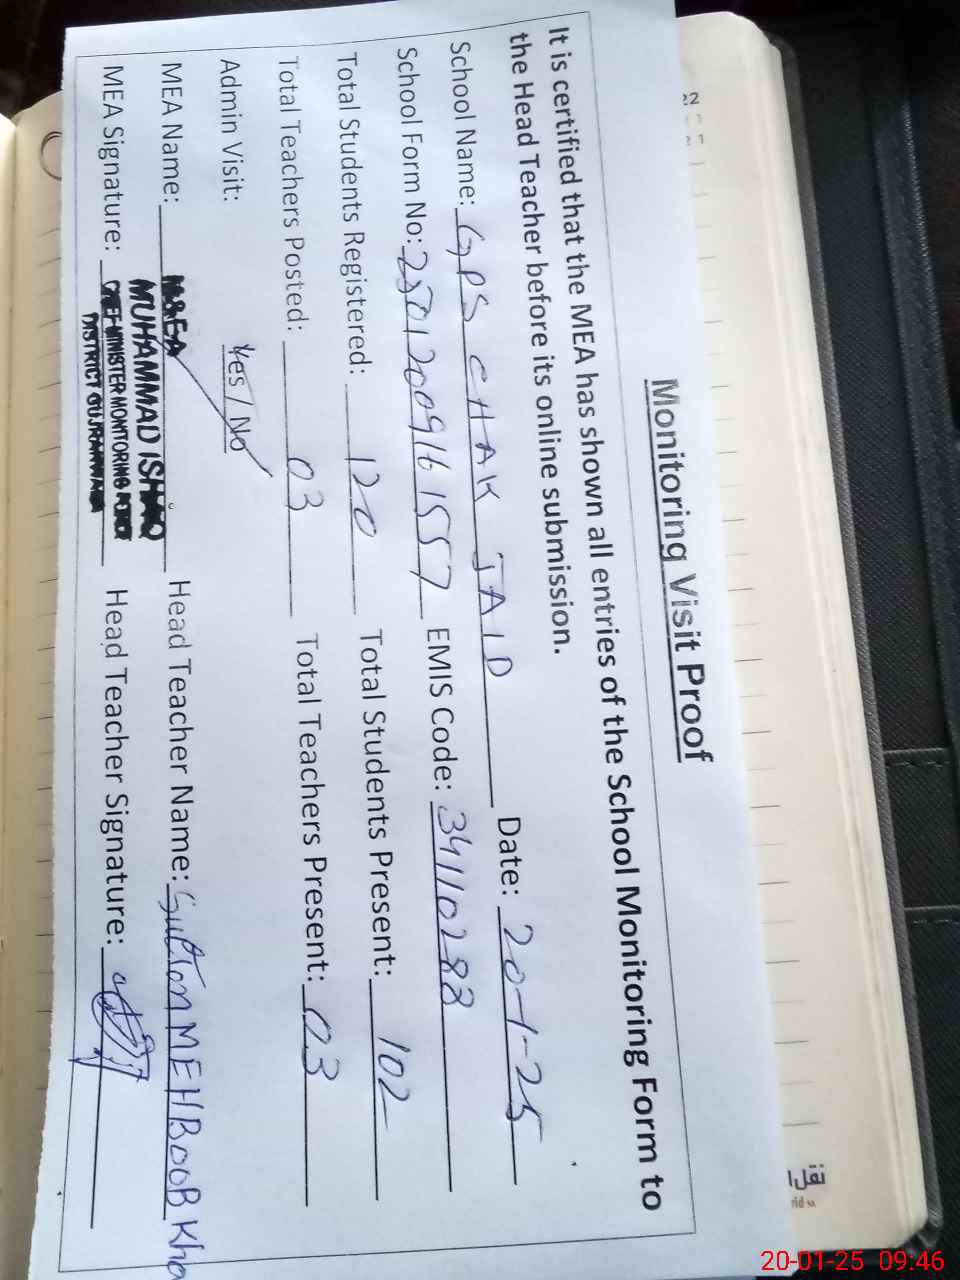 Monitoring Visit Proof
It is certified that the MEA has shown all entries of the School Monitoring Form to
the Head Teacher before its online submission.
School Name: GPS CHAK JAID Date: 20-1-25
School Form No: 2501200916157 EMIS Code: 34110288
Total Students Registered: 120 Total Students Present: 102
Total Teachers Posted: 03 Total Teachers Present: 03
Admin Visit: Yes / No
MEA Name: M&EA MUHAMMAD ISHAQ Head Teacher Name: MEHBOOB Kha
MEA Signature: CHIEF MINISTER MONITORING FORCE Head Teacher Signature:
DISTRICT GUJRANWALA
20-01-25 09:46